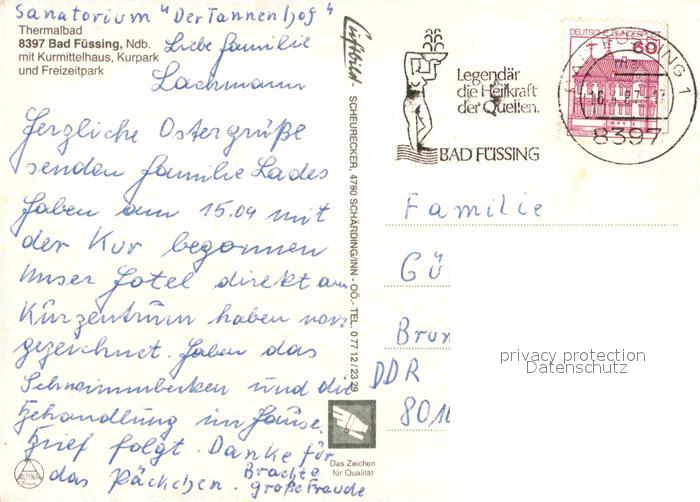 Sanatorium "Der Tannenhof"
Thermalbad
8397 Bad Füssing, Ndb.
mit Kurmittelhaus, Kurpark
und Freizeitpark
Liebe Familie
Lachmann
Herzliche Ostergrüße
senden Familie Lades
Haben am 15.04 mit
der Kur begonnen
Unser Hotel direkt am
Kurzentrum haben
gezeichnet. Haben das
Schwimmbecken und die
Behandlung im Hause.
Brief folgt. Danke für
das Päckchen. Brachte
große Freude
Luftbild-
SCHEURECKER, 4780 SCHÄRDING/INN - OÖ.- TEL. 0 77 12 / 23 29
Das Zeichen
für Qualität
ALPINA
Legendär
die Heilkraft
der Quellen.
BAD FÜSSING
DEUTSCHE BUNDESPOST
60
BAD FÜSSING 1
16.4.87-17
8397
Familie
Gü
Brun
DDR
801
privacy protection
Datenschutz